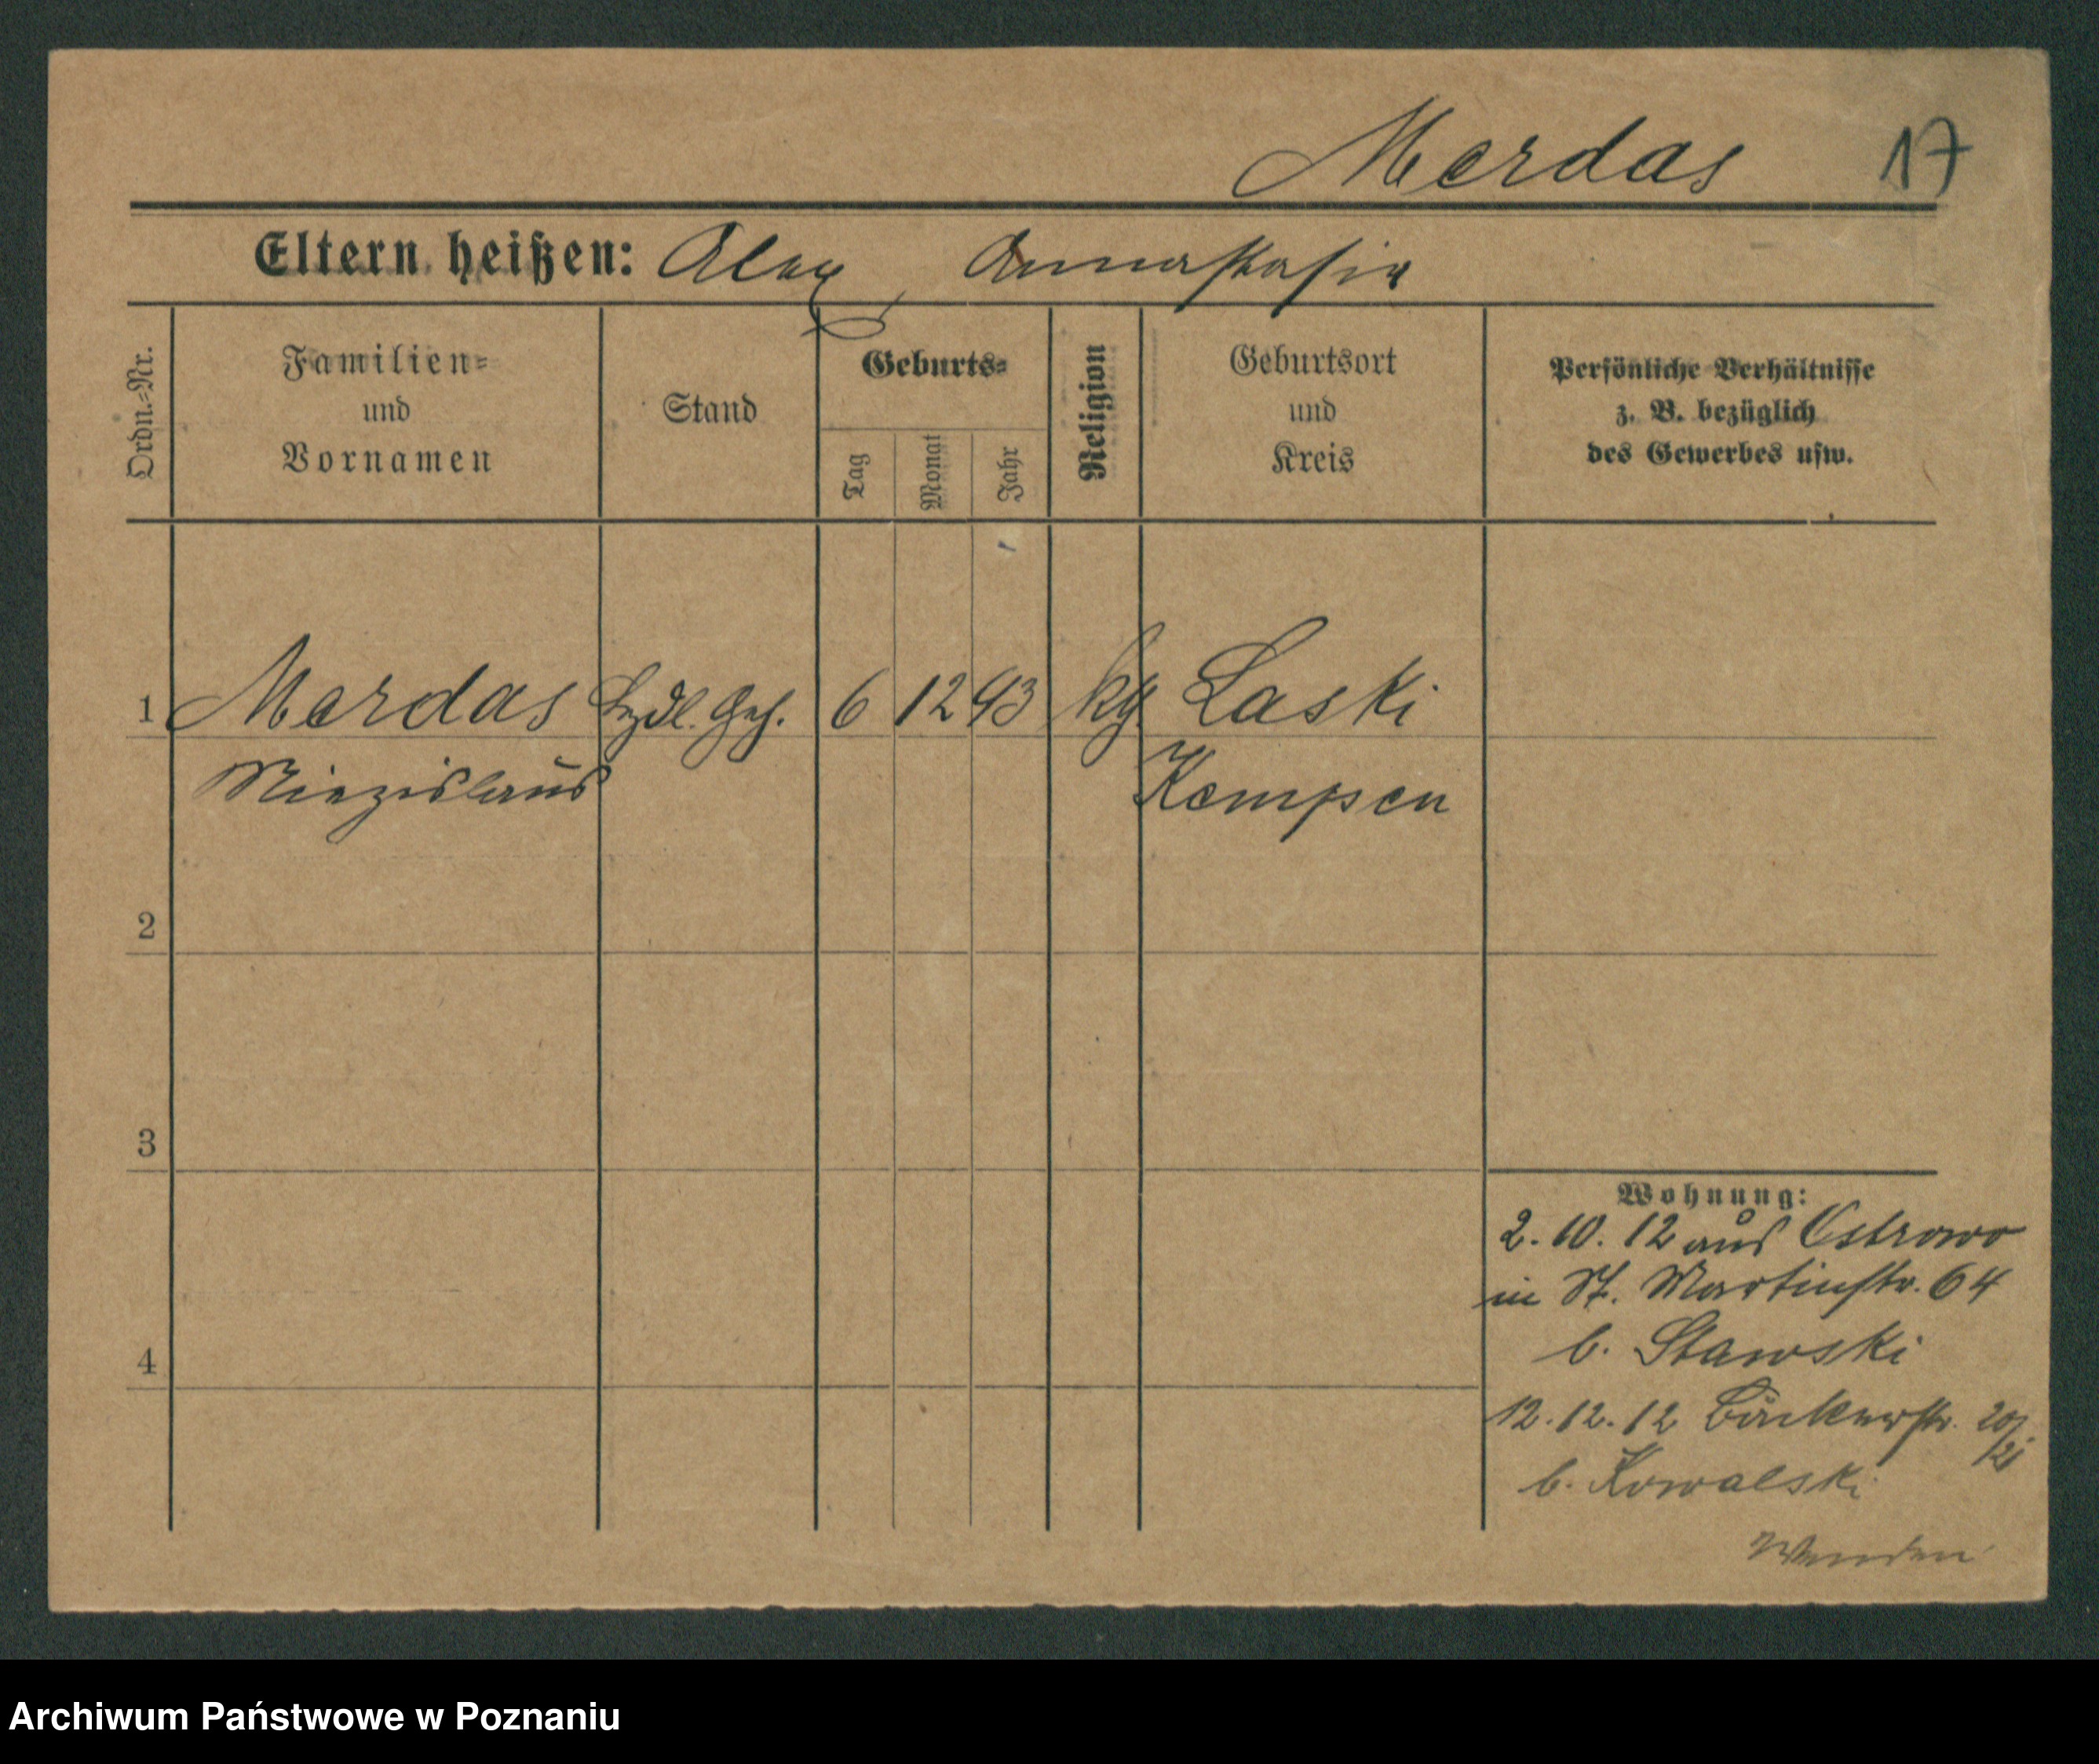 Merdas 17
Eltern heißen: Alex, Annastasia
Ordn.-Nr.
Familien-
und
Vornamen
Stand
Geburts-
Tag
Monat
Jahr
Religion
Geburtsort
und
Kreis
Persönliche Verhältnisse
z. B. bezüglich
des Gewerbes usw.
1 Merdas 6 12 93 Laski
Miezislaus Kempen
2
3
4
Wohnung:
2. 10. 12 aus Ostrowo
in St. Martinstr. 64
b. Stawski
12. 12. 12 Bäckerstr. 20/21
b. Kowalski
Wenden
Archiwum Państwowe w Poznaniu